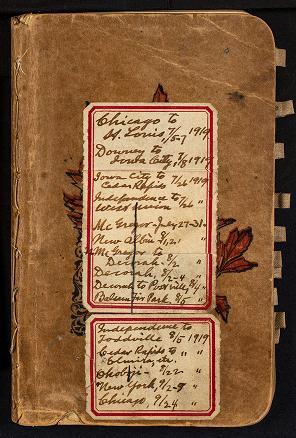 Chicago to
St. Louis, 7/5-7 1919
Downey to
Iowa City, 7/8 1919
Iowa City to 7/26 1919
Cedar Rapids
Independence to
West Union 7/26 "
McGregor July 27-31 "
New Albin 8/1,2 "
McGregor to
Decorah - 8/2 "
Decorah, 8/2-4 "
Decorah to Postville, 8/4 "
Balsam Fir Park 8/5 "
Independence to
Toddville 8/5 1919
Cedar Rapids to " "
Elmira, etc.
Okoboji - 8/22 "
New York, 9/2-9 "
Chicago, 9/24 "